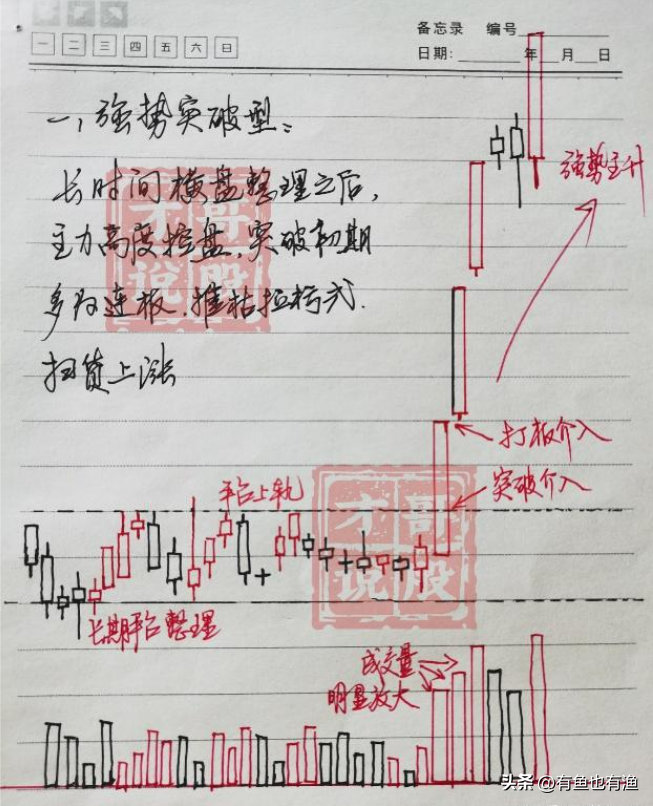 备忘录 编号
一 二 三 四 五 六 日
日期: 年 月 日
一，强势突破型：
长时间横盘整理之后，
主力高度控盘，突破初期
多为连板，摧枯拉朽式
扫货上涨
强势主升
打板介入
突破介入
平台上轨
长期平台整理
成交量
明显放大
才哥
说股
才哥
说股
头条 @有鱼也有渔